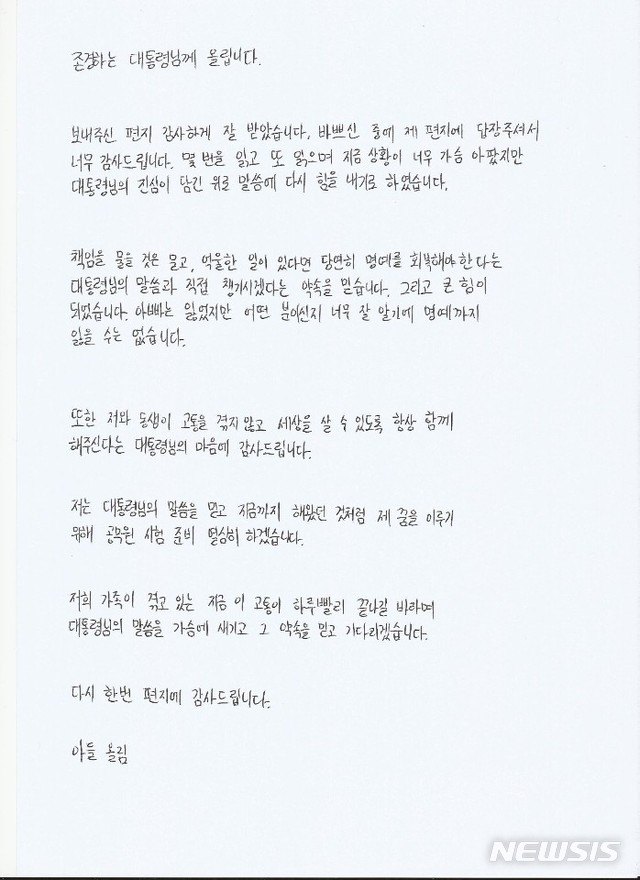 존경하는 대통령님께 올립니다.
보내주신 편지 감사하게 잘 받았습니다. 바쁘신 중에 제 편지에 답장주셔서
너무 감사드립니다. 몇 번을 읽고 또 읽으며 지금 상황이 너무 가슴 아팠지만
대통령님의 진심이 담긴 위로 말씀에 다시 힘을 내기로 하였습니다.
책임을 물을 것은 물고, 억울한 일이 있다면 당연히 명예를 회복해야 한다는
대통령님의 말씀과 직접 챙기시겠다는 약속을 믿습니다. 그리고 큰 힘이
되었습니다. 아빠는 잃었지만 어떤 분이신지 너무 잘 알기에 명예까지
잃을 수는 없습니다.
또한 저와 동생이 고통을 겪지 않고 세상을 살 수 있도록 항상 함께
해주신다는 대통령님의 마음에 감사드립니다.
저는 대통령님의 말씀을 믿고 지금까지 해왔던 것처럼 제 꿈을 이루기
위해 공무원 시험 준비 열심히 하겠습니다.
저희 가족이 겪고 있는 지금 이 고통이 하루빨리 끝나길 바라며
대통령님의 말씀을 가슴에 새기고 그 약속을 믿고 기다리겠습니다.
다시 한번 편지에 감사드립니다.
아들 올림
NEWSIS